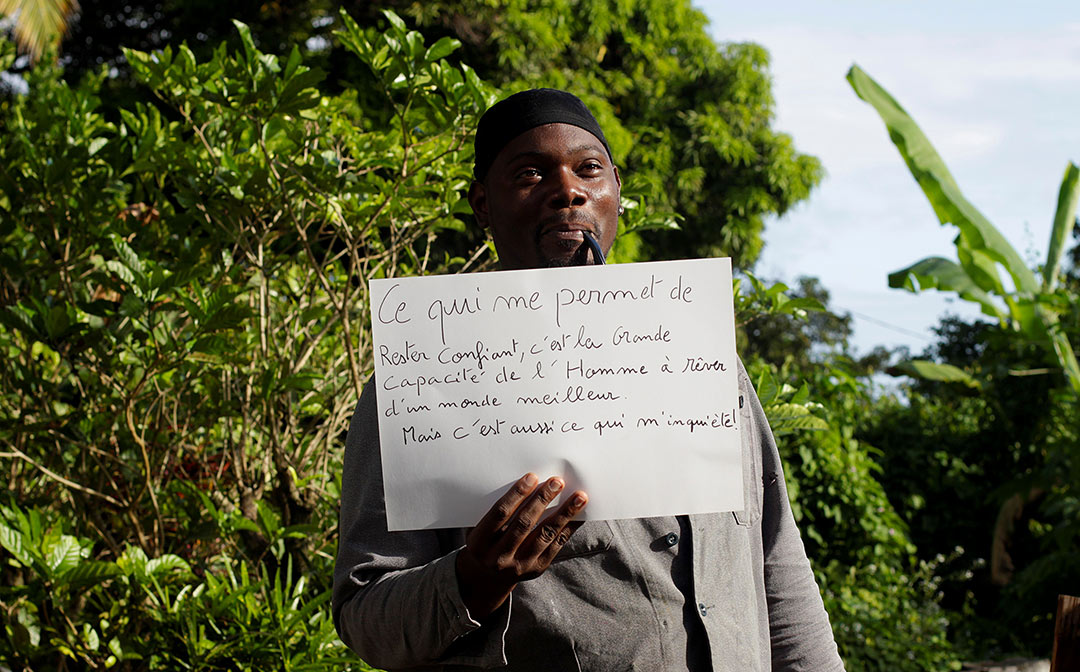 Ce qui me permet de
Rester Confiant, c'est la Grande
Capacité de l'Homme à rêver
d'un monde meilleur.
Mais c'est aussi ce qui m'inquiéte!